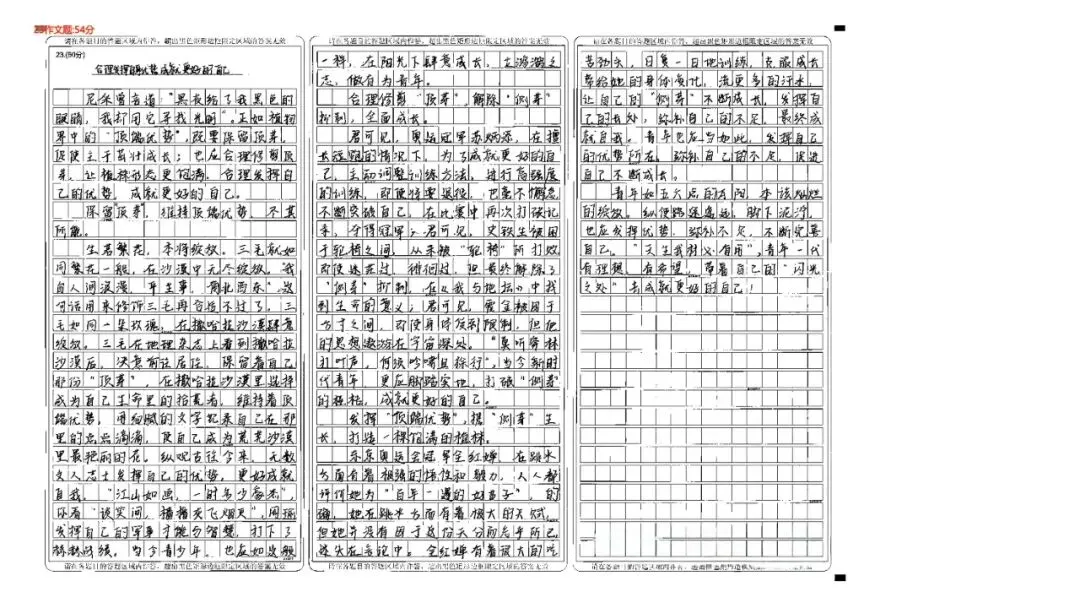 作文题:54分
请在各题目的答题区域内作答，超出黑色矩形边框限定区域的答案无效
23.(50分)
合理发挥自身优势 成就更好的自己
尼采曾言道：“黑夜给了我黑色的
眼睛，我打用它寻找光明”。正如植物
界中的“顶端优势”，既要保留顶芽，
顶使主干茁壮成长；也应合理修剪顶
芽，让植株形态更饱满。合理发挥自
己的优势，成就更好的自己。
保留“顶芽”，维持顶端优势，不其
所能。
生若繁花，本将绽放。三毛就如
同繁花一般，在沙漠中无尽绽放。“我
自人间浪漫，平生事，南北西东”。这
句话用来修饰三毛再合适不过了，三
毛如同一朵玫瑰，在撒哈拉沙漠肆意
绽放。三毛在地理杂志上看到撒哈拉
沙漠后，决意前往居住，保留着自己
那份“顶芽”，在撒哈拉沙漠里选择
成为自己生命里的拾荒者，维持着顶
端优势，用细腻的文字记录自己在那
里的点点滴滴，使自己成为荒芜沙漠
里最艳丽的花。纵观古往今来，无数
文人志士发挥自己的优势，更好成就
自我。“江山如画，一时多少豪杰”，
还看“谈笑间，樯橹灰飞烟灭”，周瑜
发挥自己的军事才能与智慧，打下了
赫赫战绩。当今青少年，也应如这般
请在各题目的答题区域内作答，超出黑色矩形边框限定区域的答案无效
请在各题目的答题区域内作答，超出黑色矩形边框限定区域的答案无效
一样，在阳光下肆意成长，立鸿鹄之
志，做有为青年。
合理修剪“顶芽”，解除“侧芽”
抑制，全面成长。
君可见，奥运冠军苏炳添，在擅
长短跑的情况下，为了成就更好的自
己，主动调整训练方法，进行高强度
的训练，即使疲惫，也毫不懈怠
不断突破自己，在比赛中再次打破记
录，夺得冠军；君可见，史铁生被困
于轮椅之间，从未被“轮椅”所打败，
即使迷茫过，徘徊过，但最终解除了
“侧芽”抑制，在《我与地坛》中找
到生命的意义；君可见，霍金被困于
方寸之间，即使身体受到限制，但他
的思想遨游在宇宙深处。“莫听穿林
打叶声，何妨吟啸且徐行”，当今新时
代青年，更应脚踏实地，打破“侧芽”
的桎梏，成就更好的自己。
发挥“顶端优势”，携“侧芽”生
长，打造一棵饱满的植株。
东京奥运会冠军全红婵，在跳水
方面有着极强的悟性和毅力，人人都
评价她为“百年一遇的好苗子”，的
确，她在跳水方面有着极大的天赋，
但她并没有因于这份天分而忘乎所已
迷失在言论中。全红婵有着极大的吃
请在各题目的答题区域内作答，超出黑色矩形边框限定区域的答案无效
请在各题目的答题区域内作答，超出黑色矩形边框限定区域的答案无效
苦劲头，日复一日地训练，克服成长
带给她的身体变化，流更多的汗水，
让自己的“侧芽”不断成长，发挥自
己的长处，弥补自己的不足，最终成
就自我。青年也应当如此，发挥自己
的优势所在，弥补自己的不足，促进
自己不断成长。
青年如五六点的太阳，本该灿烂
的绽放。纵使路途遥远，脚下泥泞，
也应发挥优势，弥补不足，不断完善
自己。“天生我材必有用”，青年一代
有理想、有希望，带着自己的“闪光
之处”去成就更好的自己！